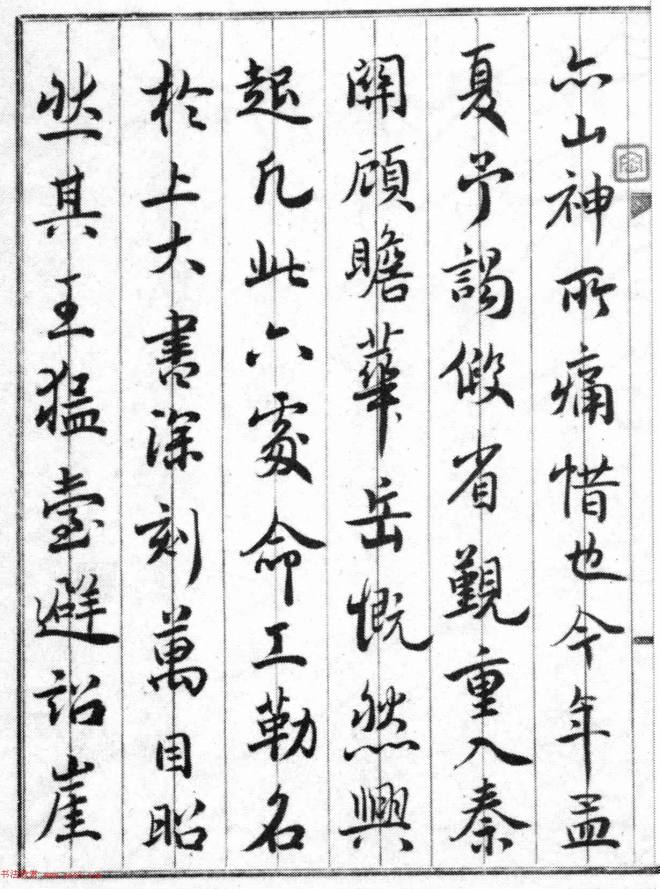 亦山神所痛惜也今年孟
夏予謁假省覲重入秦
關顧瞻華岳慨然興
起凡此六處命工勒名
於上大書深刻萬目昭
然其王猛臺避詔崖